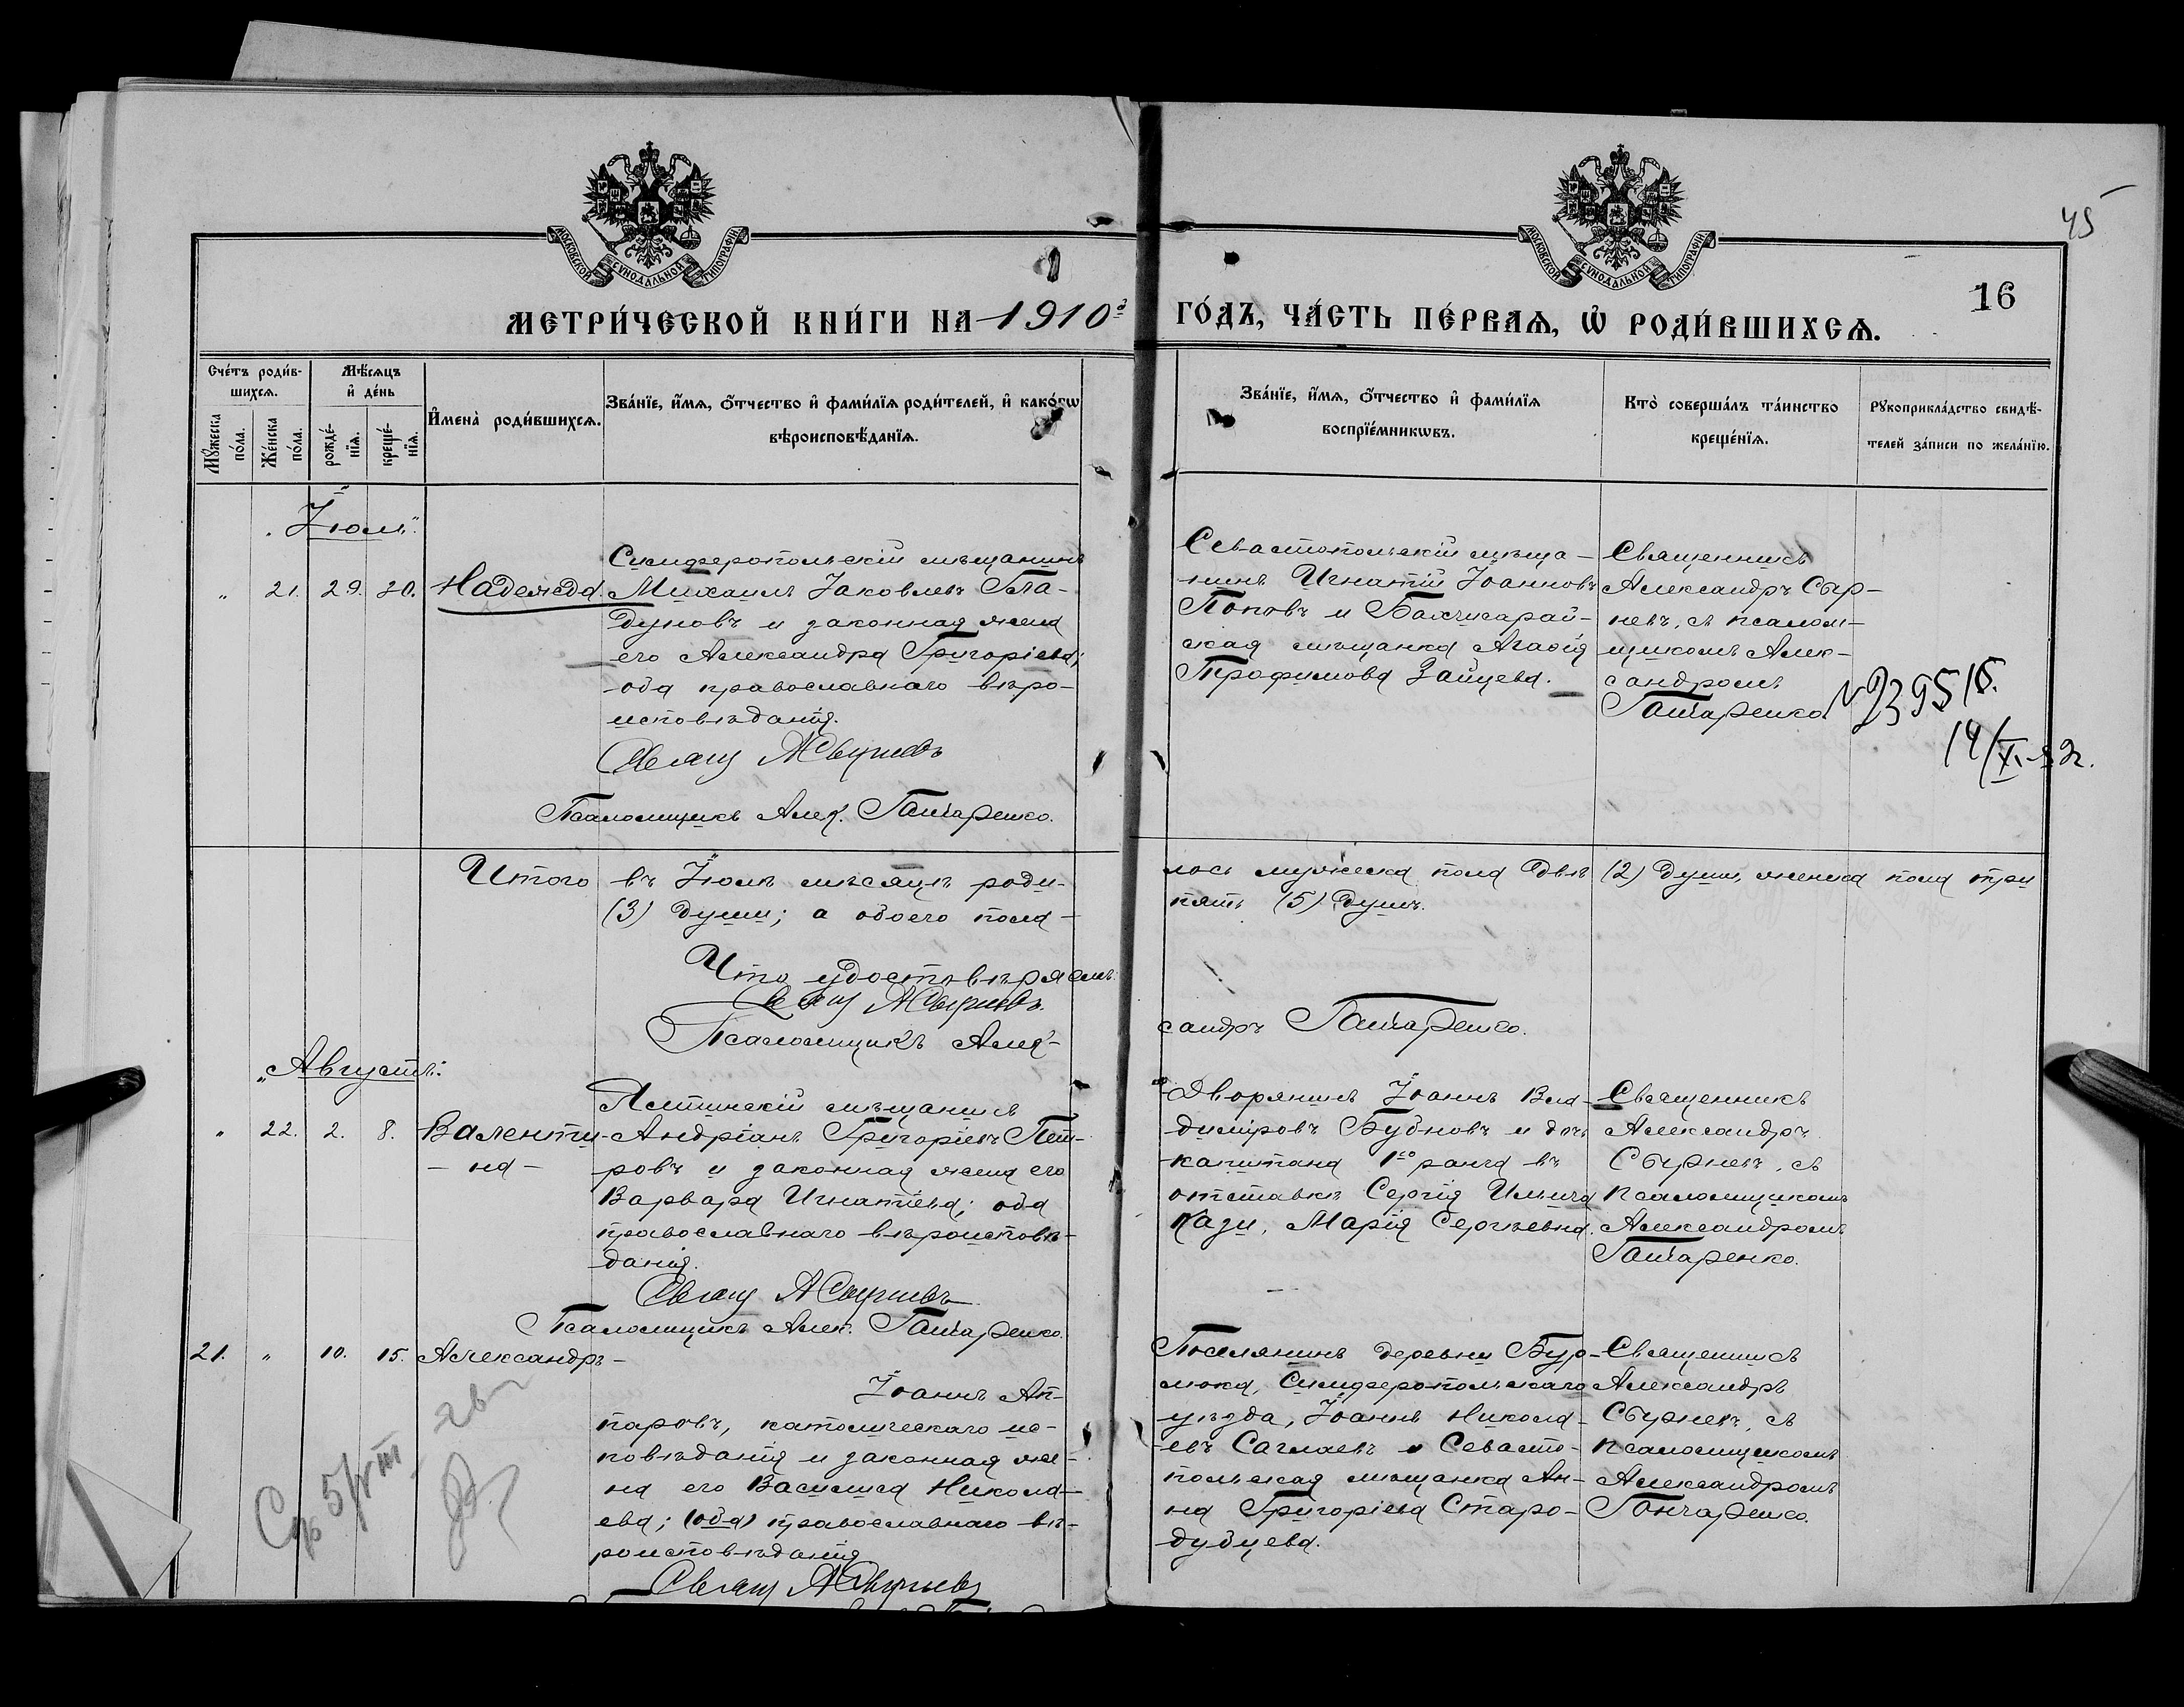 45
16
МОСКОВСКОЙ СѴНОДАЛЬНОЙ ТИПОГРАФІИ
МОСКОВСКОЙ СѴНОДАЛЬНОЙ ТИПОГРАФІИ
МЕТРИ́ЧЕСКОЙ КНИ́ГИ НА 1910й
ГО́ДЪ, ЧА́СТЬ ПЕ́РВАѦ, Ѡ҆ РОДИ́ВШИХСѦ.
Сче́тъ роди́в-
шихсѧ.
Мꙋ́жеска
по́ла.
Же́нска
по́ла.
Мѣ́сѧцъ
и҆ де́нь
рожде́-
нїѧ.
креще́-
нїѧ.
И҆мена̀ роди́вшихсѧ.
Зва́нїе, и҆́мѧ, ѻ҆́тчество и҆ фамилїѧ роди́телей, и҆ како́гѡ
вѣроисповѣ́данїѧ.
Зва́нїе, и҆́мѧ, ѻ҆́тчество и҆ фамилїѧ
воспрїе́мникѡвъ.
Кто̀ соверша́лъ та́инство
креще́нїѧ.
Рꙋкоприкла́дство свидѣ́-
телей за́писи по жела́нїю.
„Іюль“.
„ 21. 29. 30. Надежда.
Симферопольскій мѣщанинъ
Михаилъ Іаковлевъ
дуновъ и законная жена
его Александра Григоріева;
оба православнаго вѣро-
исповѣданія.
Свящ А Сырневъ
Псаломщикъ Алек. Гончаренко.
Севастопольскій мѣща-
нинъ Игнатій Іоанновъ
Поповъ и Бахчисарай-
ская мѣщанка Агафія
Трофимова Зайцева.
Священникъ
Александръ Сыр-
невъ, съ псалом-
щикомъ Алек-
сандромъ
Гончаренко.
14/XI
Итого въ Іюлѣ мѣсяцѣ роди-
лось мужеска пола двѣ (2) души, женска пола три
(3) души; а обоего пола
пять (5) душъ.
Что удостовѣряемъ:
Свящ А Сырневъ.
Псаломщикъ Алек-
сандръ Гончаренко.
„Августъ:
„ 22. 2. 8. Валенти-
- на -
Ялтинскій мѣщанинъ
Андріанъ Григоріевъ Пет-
ровъ и законная жена его
Варвара Игнатіева; оба
православнаго вѣроисповѣ-
данія.
Свящ А Сырневъ
Псаломщикъ Алек. Гончаренко.
Дворянинъ Іоаннъ Вла-
диміровъ Бубновъ и дочь
капитана 1го ранга въ
отставкѣ Сергія Ильича
Кази, Марія Сергѣевна.
Священникъ
Александръ
Сырневъ, съ
псаломщикомъ
Александромъ
Гончаренко.
21. „ 10. 15. Александръ -
Іоаннъ Ап-
паровъ, католическаго ис-
повѣданія и законная же-
на его Василиса Никола-
ева; (оба) православнаго вѣ-
роисповѣданія
Свящ А Сырневъ
Поселянинъ деревни Бур-
люка, Симферопольскаго
уѣзда, Іоаннъ Никола-
евъ Саглаевъ и Севасто-
польская мѣщанка Ан-
на Григоріева Старо-
дубцева.
Священникъ
Александръ
Сырневъ, съ
псаломщикомъ
Александромъ
Гончаренко.